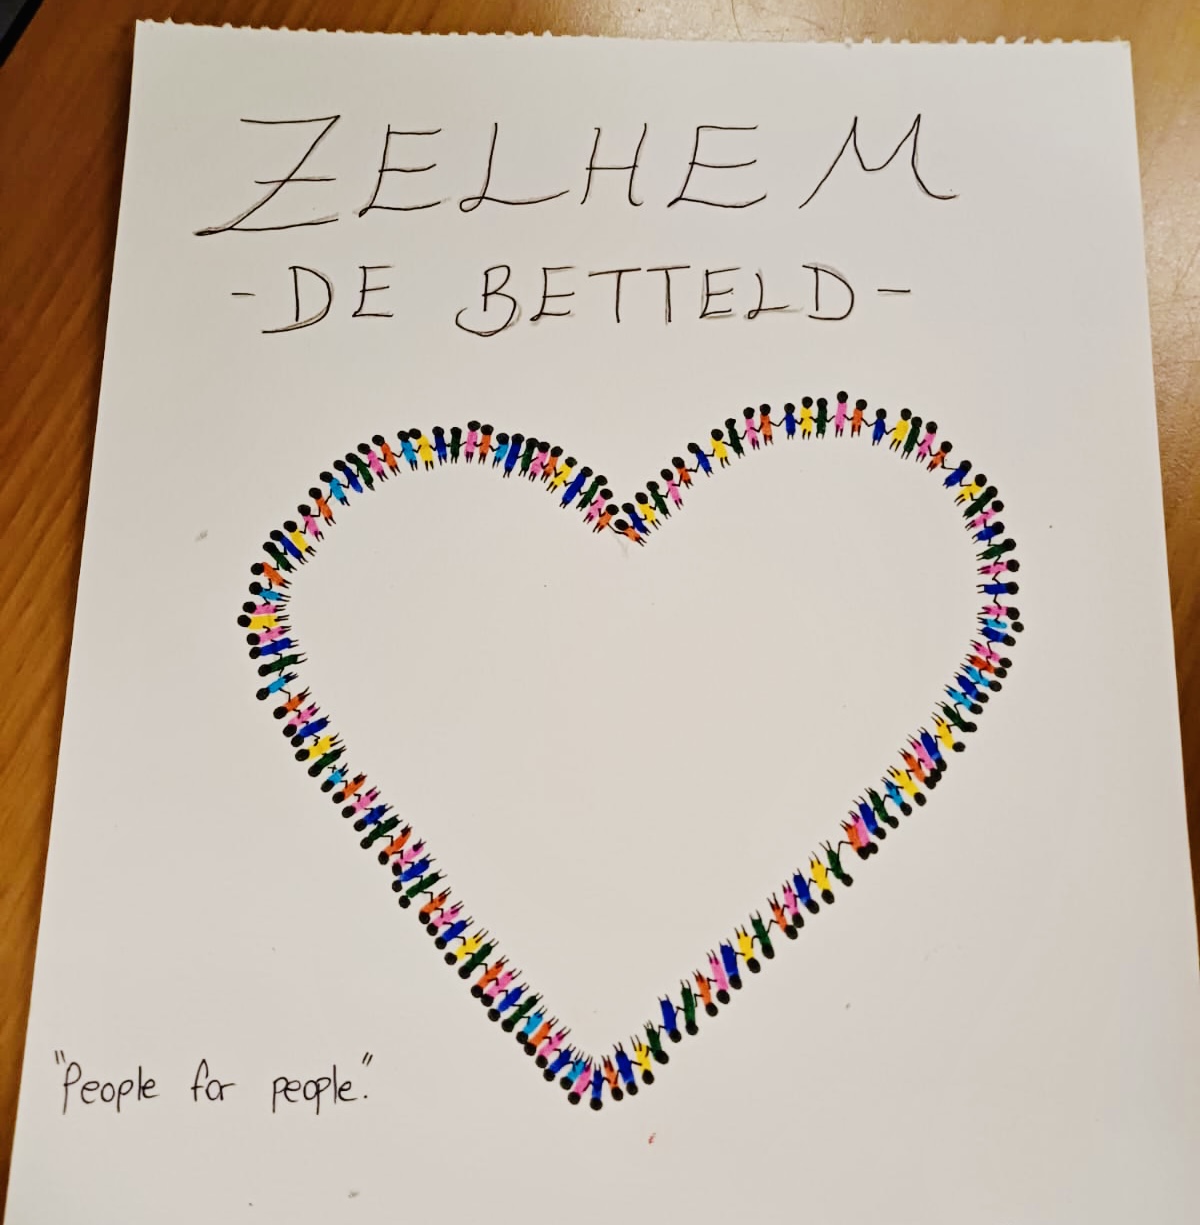 ZELHEM
-DE BETTELD-
"People for people."